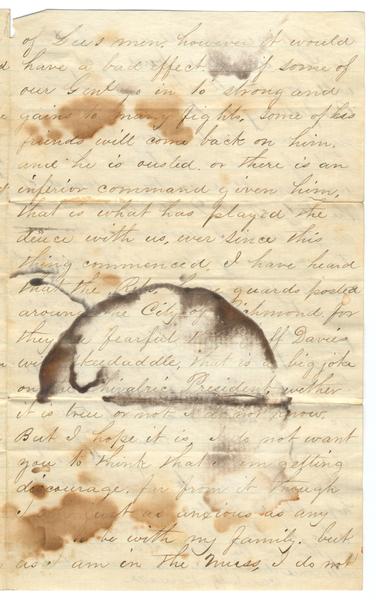 of Lee's men, however it would
have a bad effect if some of
our Genl go in to strong and
gains to many fights. some of his
friends will come back on him.
and he is ousted. or there is an
inferior command given him,
that is what has played the
deuce with us, ever since this
thing commenced, I have heard
that the guards posted
around the City of Richmond for
they fearful Jeff Davis
will skedaddle, that is a big joke
on chivalric President wether
it is true or not I do not know.
But I hope it is, I do not want
you to think that I am getting
discourage. far from it though
I just as anxious as any
be with my family. but
as I am in the muss, I do not